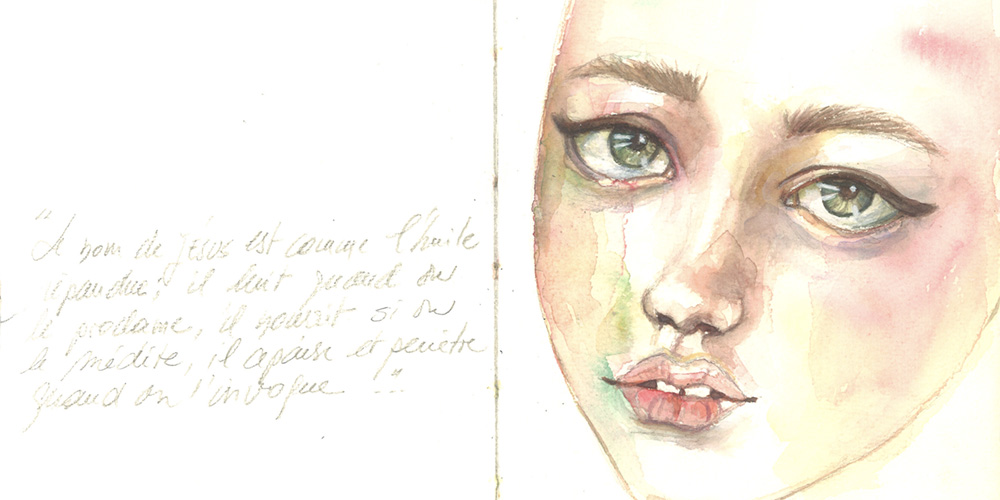 "Le nom de Jésus est comme l'huile
épandue; il luit quand on
le proclame, il nourrit si on
le médite, il apaise et pénètre
quand on l'invoque !..."